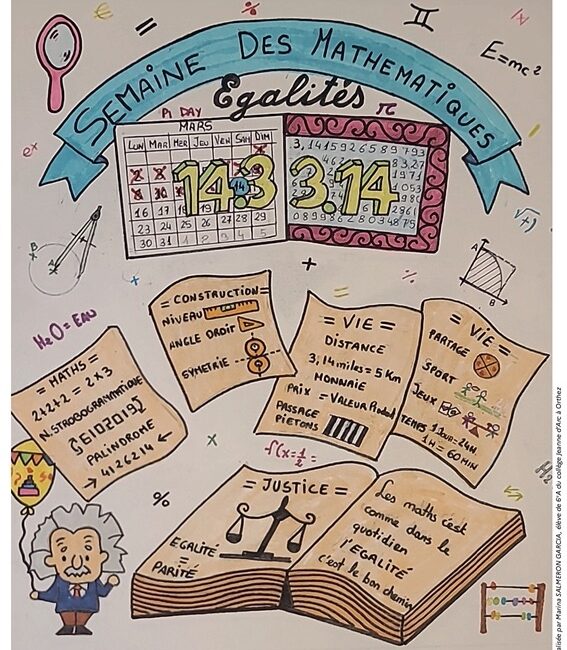 SEMAINE DES MATHEMATIQUES
Egalités
E=mc²
PI DAY
π
MARS
LUN MAR MER JEU VEN SAM DIM
14.3
14
16 17 18 19
23 24 25 26 27 28 29
30 31 1 2 3 4 5
3,141592653589793
3.14
e^x
A
B
√x+y
A
B
H₂O = EAU
= MATHS =
2+2+2 = 2x3
N.STROBOGRAMATIQUE
6102019
PALINDROME
→ 4126214 ←
= CONSTRUCTION =
NIVEAU
ANGLE DROIT
SYMETRIE
= VIE =
DISTANCE
3,14 miles = 5 Km
MONNAIE
PRIX = VALEUR Produit
PASSAGE
PIETONS
= VIE =
PARTAGE
SPORT
JEUX
TEMPS 1 Jour = 24H
1H = 60 MIN
f(x=½=
%
= JUSTICE =
EGALITÉ
=
PARITÉ
Les maths c'est
comme dans le
quotidien
l'EGALITÉ
C'est le bon chemin
alisée par Marina SALMERON GARCIA, élève de 6°A du collège Jeanne d'Arc à Orthez